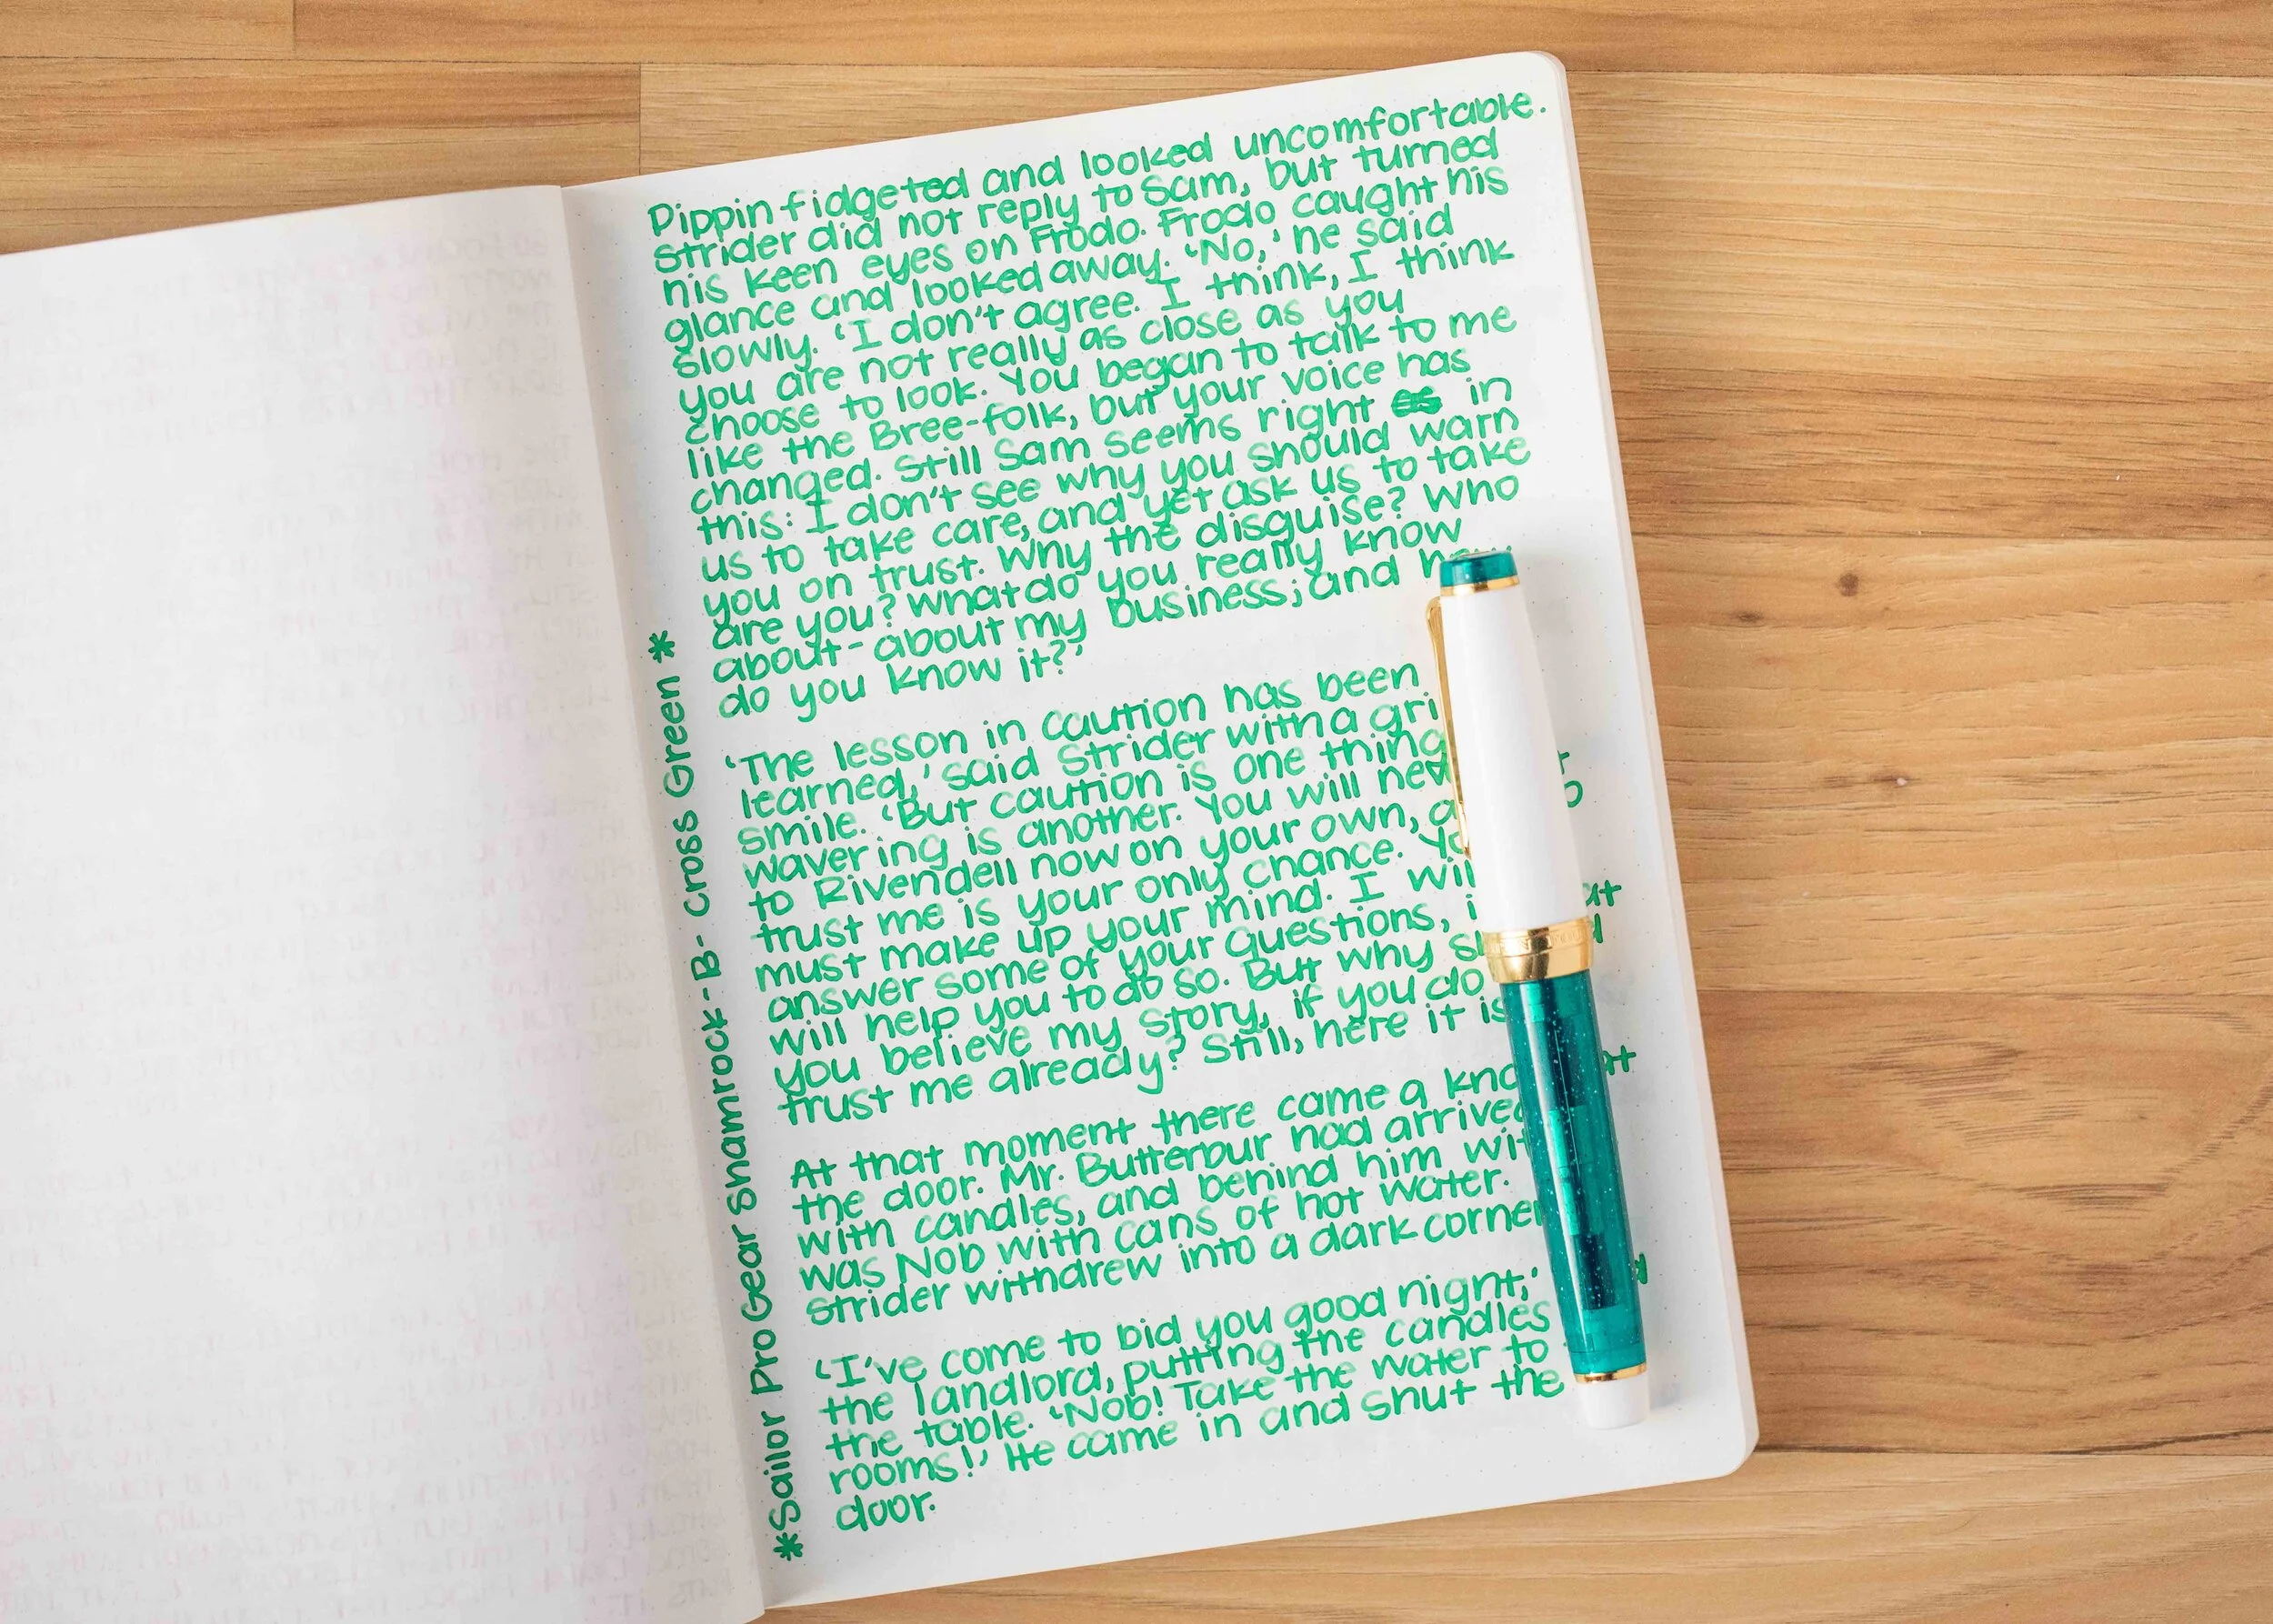 Pippin fidgeted and looked uncomfortable.
Strider did not reply to Sam, but turned
his keen eyes on Frodo. Frodo caught his
glance and looked away. 'No,' he said
slowly. 'I don't agree. I think, I think
you are not really as close as you
choose to look. You began to talk to me
like the Bree-folk, but your voice has
changed. Still Sam seems right in
this: I don't see why you should warn
us to take care, and yet ask us to take
you on trust. Why the disguise? Who
are you? What do you really know
about - about my business; and how
do you know it?'
'The lesson in caution has been
learned,' said Strider with a
smile. 'But caution is one thing
wavering is another. You will
to Rivendell now on your own,
trust me is your only chance.
must make up your mind. I
answer some of your questions,
will help you to do so. But why
you believe my story, if you do
trust me already? Still, here it is
At that moment there came a
the door. Mr. Butterbur had arrived
with candles, and behind him
was Nob with cans of hot water.
Strider withdrew into a dark corner
'I've come to bid you good night,'
the landlord, putting the candles
the table. 'Nob! Take the water to
rooms!' He came in and shut the
door.
*Sailor Pro Gear Shamrock - B - Cross Green *